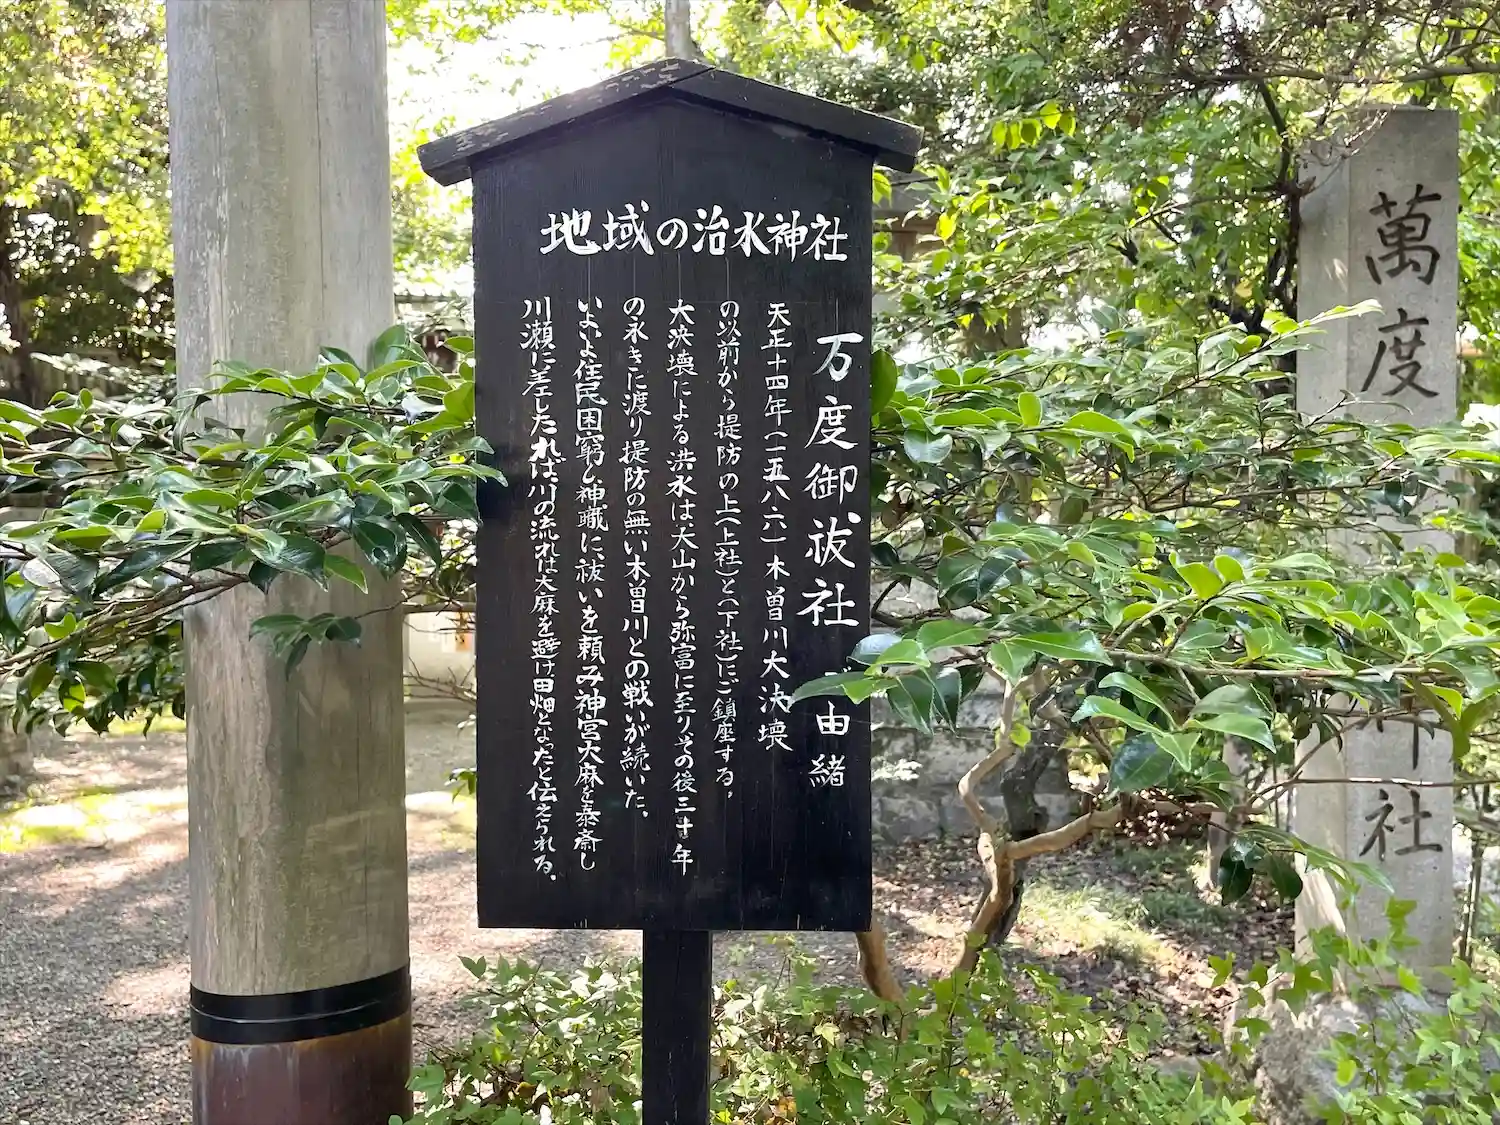 地域の治水神社
万度御祓社 由緒
天正十四年(一五八六)木曽川大決壊
の以前から提防の上(上社)と(下社)にご鎮座する。
大決壊による洪水は、犬山から弥富に至りその後三十年
の永きに渡り提防の無い木曽川との戦いが続いた。
いよいよ住民困窮し神職に、祓いを頼み神宮大麻を泰斎し
川瀬に差したれば、川の流れは大麻を避け田畑となったと伝えられる。
萬度
社